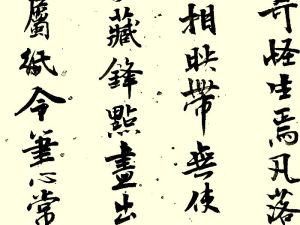 奇怪生焉凡落
相映帶無使
藏鋒點畫出
屬紙令筆心常